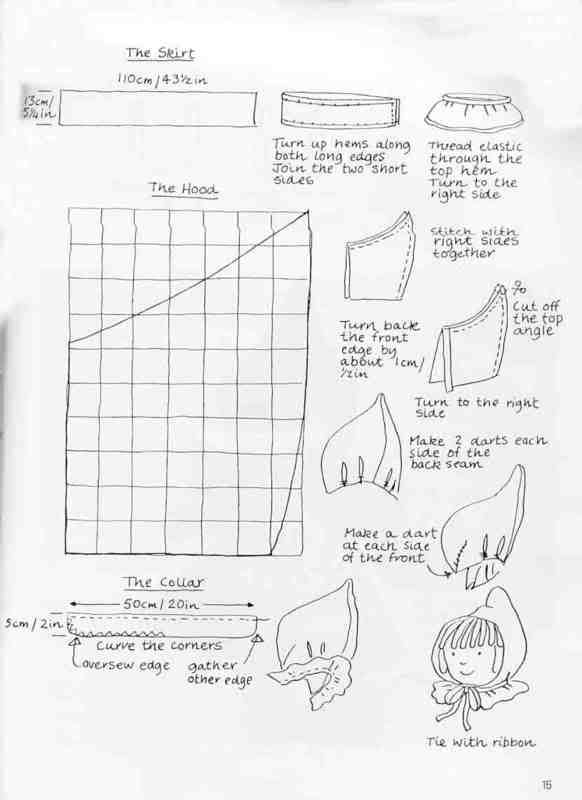 The Skirt
110cm/43½in
13cm/
5¼in
Turn up hems along
both long edges
Join the two short
sides
Thread elastic
through the
top hem
Turn to the
right side
The Hood
Stitch with
right sides
together
Cut off
the top
angle
Turn back
the front
edge by
about 1cm/
½in
Turn to the right
side
Make 2 darts each
side of the
back seam
Make a dart
at each side
of the front
The Collar
50cm/20in
5cm/2in
Curve the corners
oversew edge
gather
other edge
Tie with ribbon
15